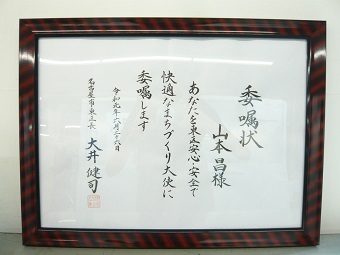 委嘱状
山本昌様
あなたを東区安心・安全で
快適なまちづくり大使に
委嘱します
令和元年六月二十六日
名古屋市東区長 大井健司